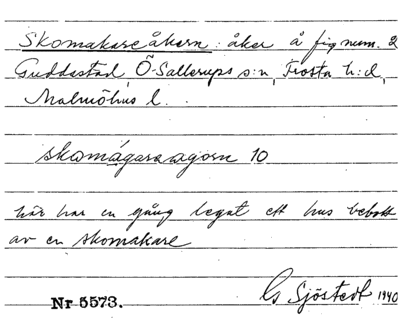 Skomakareåkern: åker å fig num. 2
Guddastad, Ö-Sallerups s:n, Frosta h:d,
Malmöhus l.
skomágara agorn 10
här har en gång legat ett hus bebott
av en skomakare
Nr 5573. Gs Sjöstedt 1940